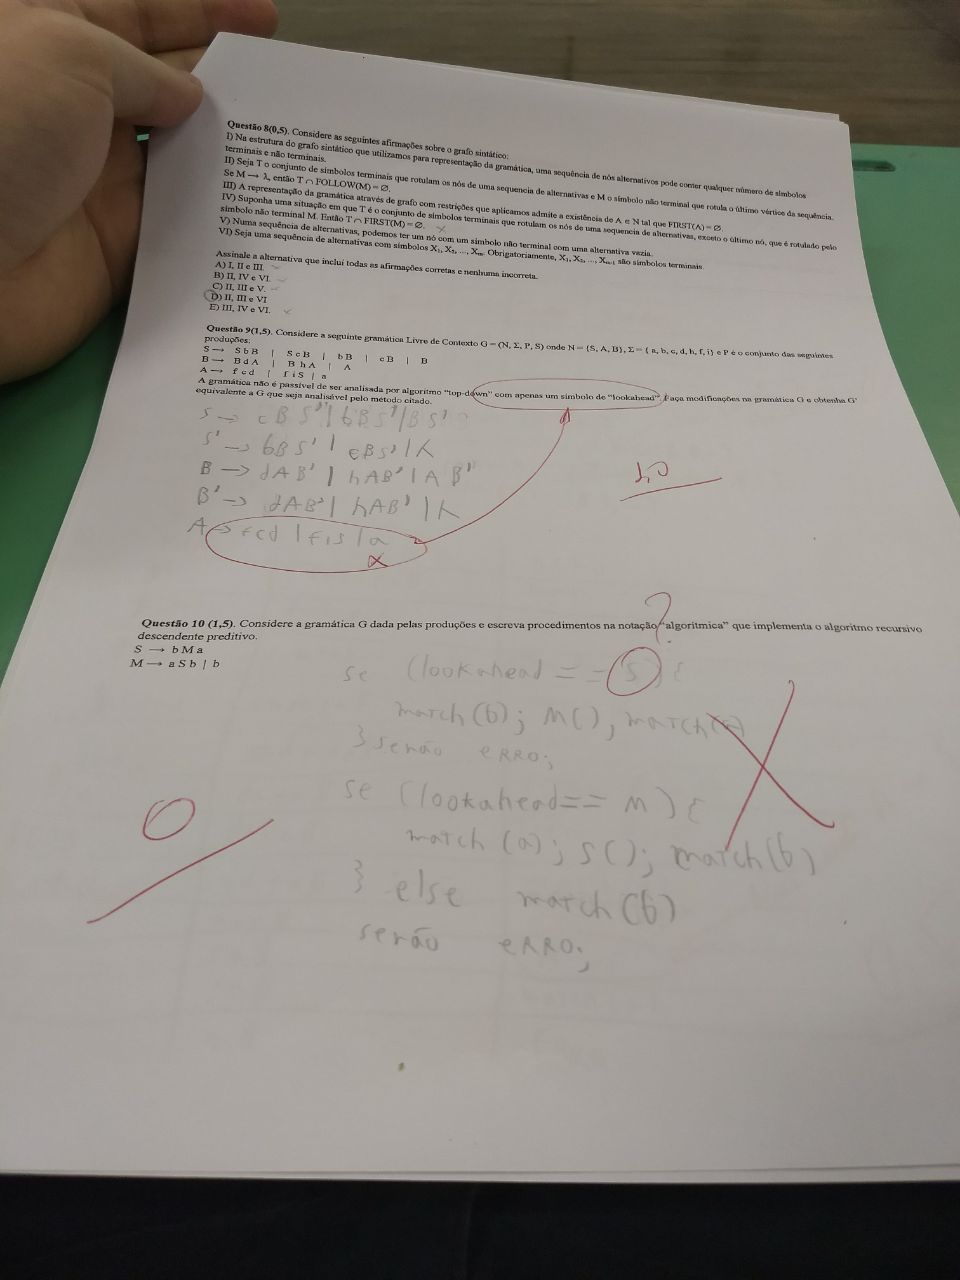 Questão 8(0,5). Considere as seguintes afirmações sobre o grafo sintático:
I) Na estrutura do grafo sintático que utilizamos para representação da gramática, uma sequência de nós alternativos pode conter qualquer número de símbolos
terminais e não terminais.
II) Seja T o conjunto de símbolos terminais que rotulam os nós de uma sequencia de alternativas e M o símbolo não terminal que rotula o último vértice da sequência.
Se M → λ, então T ∩ FOLLOW(M) = ∅.
III) A representação da gramática através de grafo com restrições que aplicamos admite a existência de A ∈ N tal que FIRST(A) = ∅.
IV) Suponha uma situação em que T é o conjunto de símbolos terminais que rotulam os nós de uma sequencia de alternativas, exceto o último nó, que é rotulado pelo
símbolo não terminal M. Então T ∩ FIRST(M) = ∅.
V) Numa sequência de alternativas, podemos ter um nó com um símbolo não terminal com uma alternativa vazia.
VI) Seja uma sequência de alternativas com símbolos X1, X2, ..., Xm. Obrigatoriamente, X1, X2, ..., Xm-1 são símbolos terminais.
Assinale a alternativa que inclui todas as afirmações corretas e nenhuma incorreta.
A) I, II e III.
B) II, IV e VI.
C) II, III e V.
D) II, III e VI
E) III, IV e VI.
Questão 9(1,5). Considere a seguinte gramática Livre de Contexto G = (N, Σ, P, S) onde N = {S, A, B}, Σ = { a, b, c, d, h, f, i} e P é o conjunto das seguintes
produções:
S → S b B | S c B | b B | c B | B
B → B d A | B h A | A
A → f c d | f i S | a
A gramática não é passível de ser analisada por algoritmo "top-down" com apenas um símbolo de "lookahead". Faça modificações na gramática G e obtenha G'
equivalente a G que seja analisável pelo método citado.
S → cBS' | bBS' | BS'
S' → bBS' | cBS' | λ
B → dAB' | hAB' | AB'
B' → dAB' | hAB' | λ
A → fcd | fiS | a
1,0
Questão 10 (1,5). Considere a gramática G dada pelas produções e escreva procedimentos na notação "algorítmica" que implementa o algoritmo recursivo
descendente preditivo.
S → b M a
M → a S b | b
?
se (lookahead == S) {
match(b); M(), match(a)
} senão ERRO;
se (lookahead == M) {
match (a); S(); match(b)
} else match(b)
senão ERRO;
0